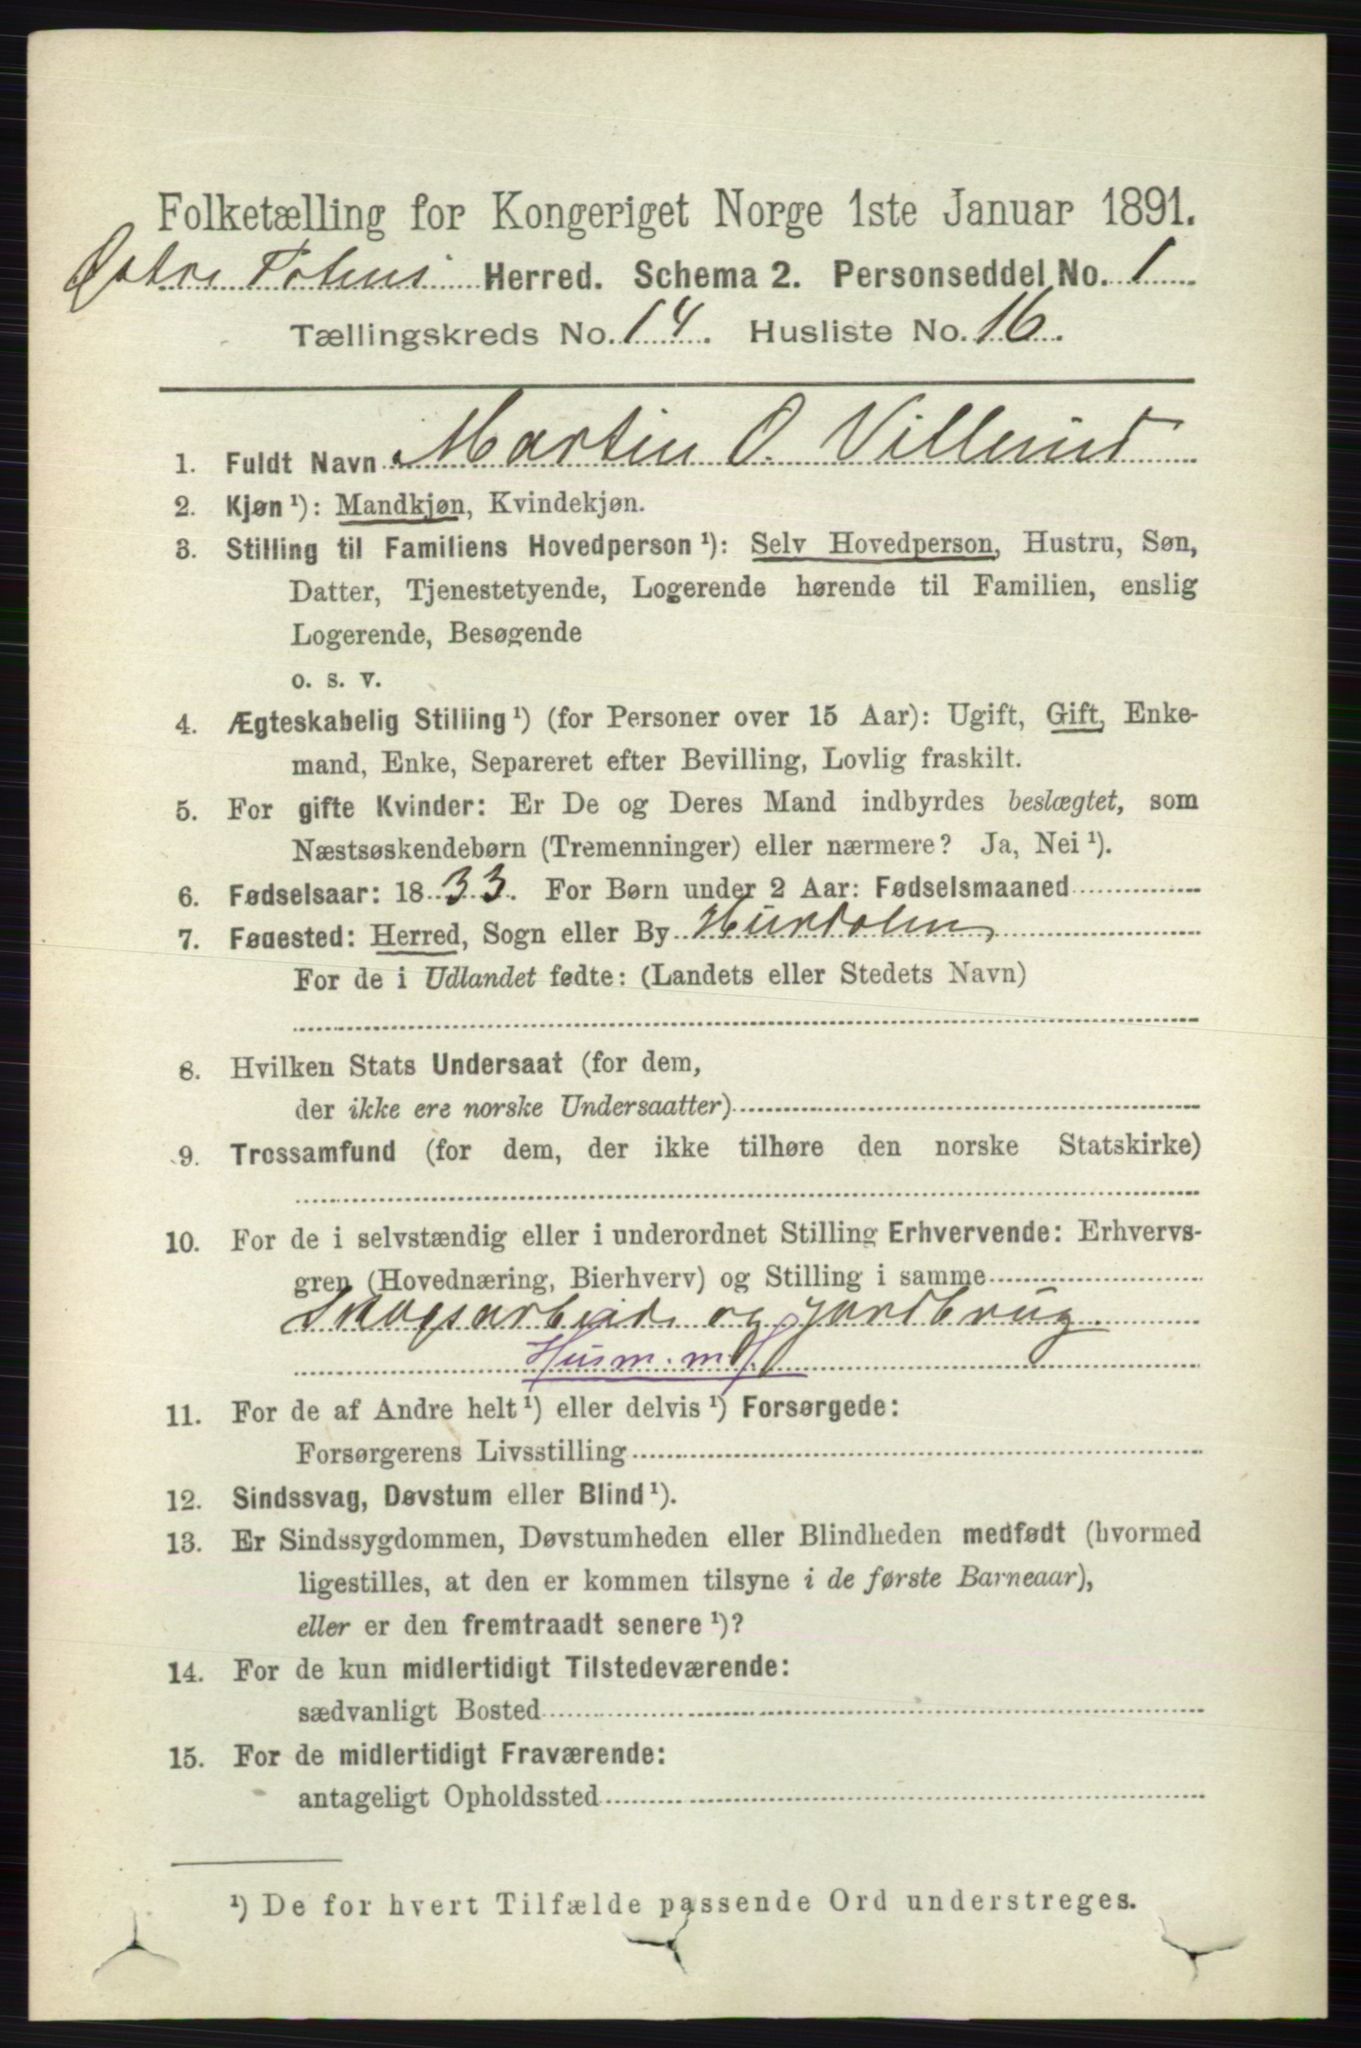 Folketælling for Kongeriget Norge 1ste Januar 1891.
Østre Totens Herred. Schema 2. Personseddel No. 1
Tællingskreds No. 14. Husliste No. 16.
1. Fuldt Navn Martin O. Villund
2. Kjøn ¹): Mandkjøn, Kvindekjøn.
3. Stilling til Familiens Hovedperson ¹): Selv Hovedperson, Hustru, Søn,
Datter, Tjenestetyende, Logerende hørende til Familien, enslig
Logerende, Besøgende
o. s. v.
4. Ægteskabelig Stilling ¹) (for Personer over 15 Aar): Ugift, Gift, Enke-
mand, Enke, Separeret efter Bevilling, Lovlig fraskilt.
5. For gifte Kvinder: Er De og Deres Mand indbyrdes beslægtet, som
Næstsøskendebørn (Tremenninger) eller nærmere? Ja, Nei ¹).
6. Fødselsaar: 1833. For Børn under 2 Aar: Fødselsmaaned
7. Fødested: Herred, Sogn eller By Hurdalen,
For de i Udlandet fødte: (Landets eller Stedets Navn)
8. Hvilken Stats Undersaat (for dem,
der ikke ere norske Undersaatter)
9. Trossamfund (for dem, der ikke tilhøre den norske Statskirke)
10. For de i selvstændig eller i underordnet Stilling Erhvervende: Erhvervs-
gren (Hovednæring, Bierhverv) og Stilling i samme
Skogsarbeide og jordbrug
Husm. m. J.
11. For de af Andre helt ¹) eller delvis ¹) Forsørgede:
Forsørgerens Livsstilling
12. Sindssvag, Døvstum eller Blind ¹).
13. Er Sindssygdommen, Døvstumheden eller Blindheden medfødt (hvormed
ligestilles, at den er kommen tilsyne i de første Barneaar),
eller er den fremtraadt senere ¹)?
14. For de kun midlertidigt Tilstedeværende:
sædvanligt Bosted
15. For de midlertidigt Fraværende:
antageligt Opholdssted
¹) De for hvert Tilfælde passende Ord understreges.